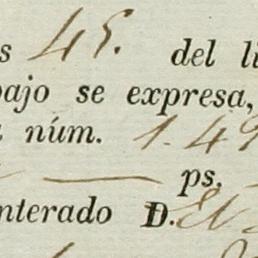 s 45. del li
bajo se expresa,
núm. 1.49
ps.
nterado D.